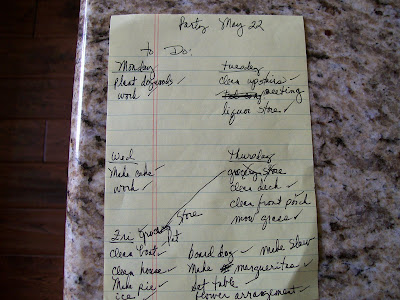 Party May 22
to Do:
Monday
Plant dogwoods ✓
work ✓
Tuesday
Clean upstairs ✓
meeting
liquor store ✓
Wed
Make cake ✓
work ✓
Thursday
grocery store
clean deck ✓
clean front porch ✓
mow grass ✓
Fri Grocery Store
Clean boat ✓ Pat
Clean house ✓
Make rice ✓
ice ✓
board dog ✓
Make margueritas ✓
Set table
flower arrangement
make slaw ✓